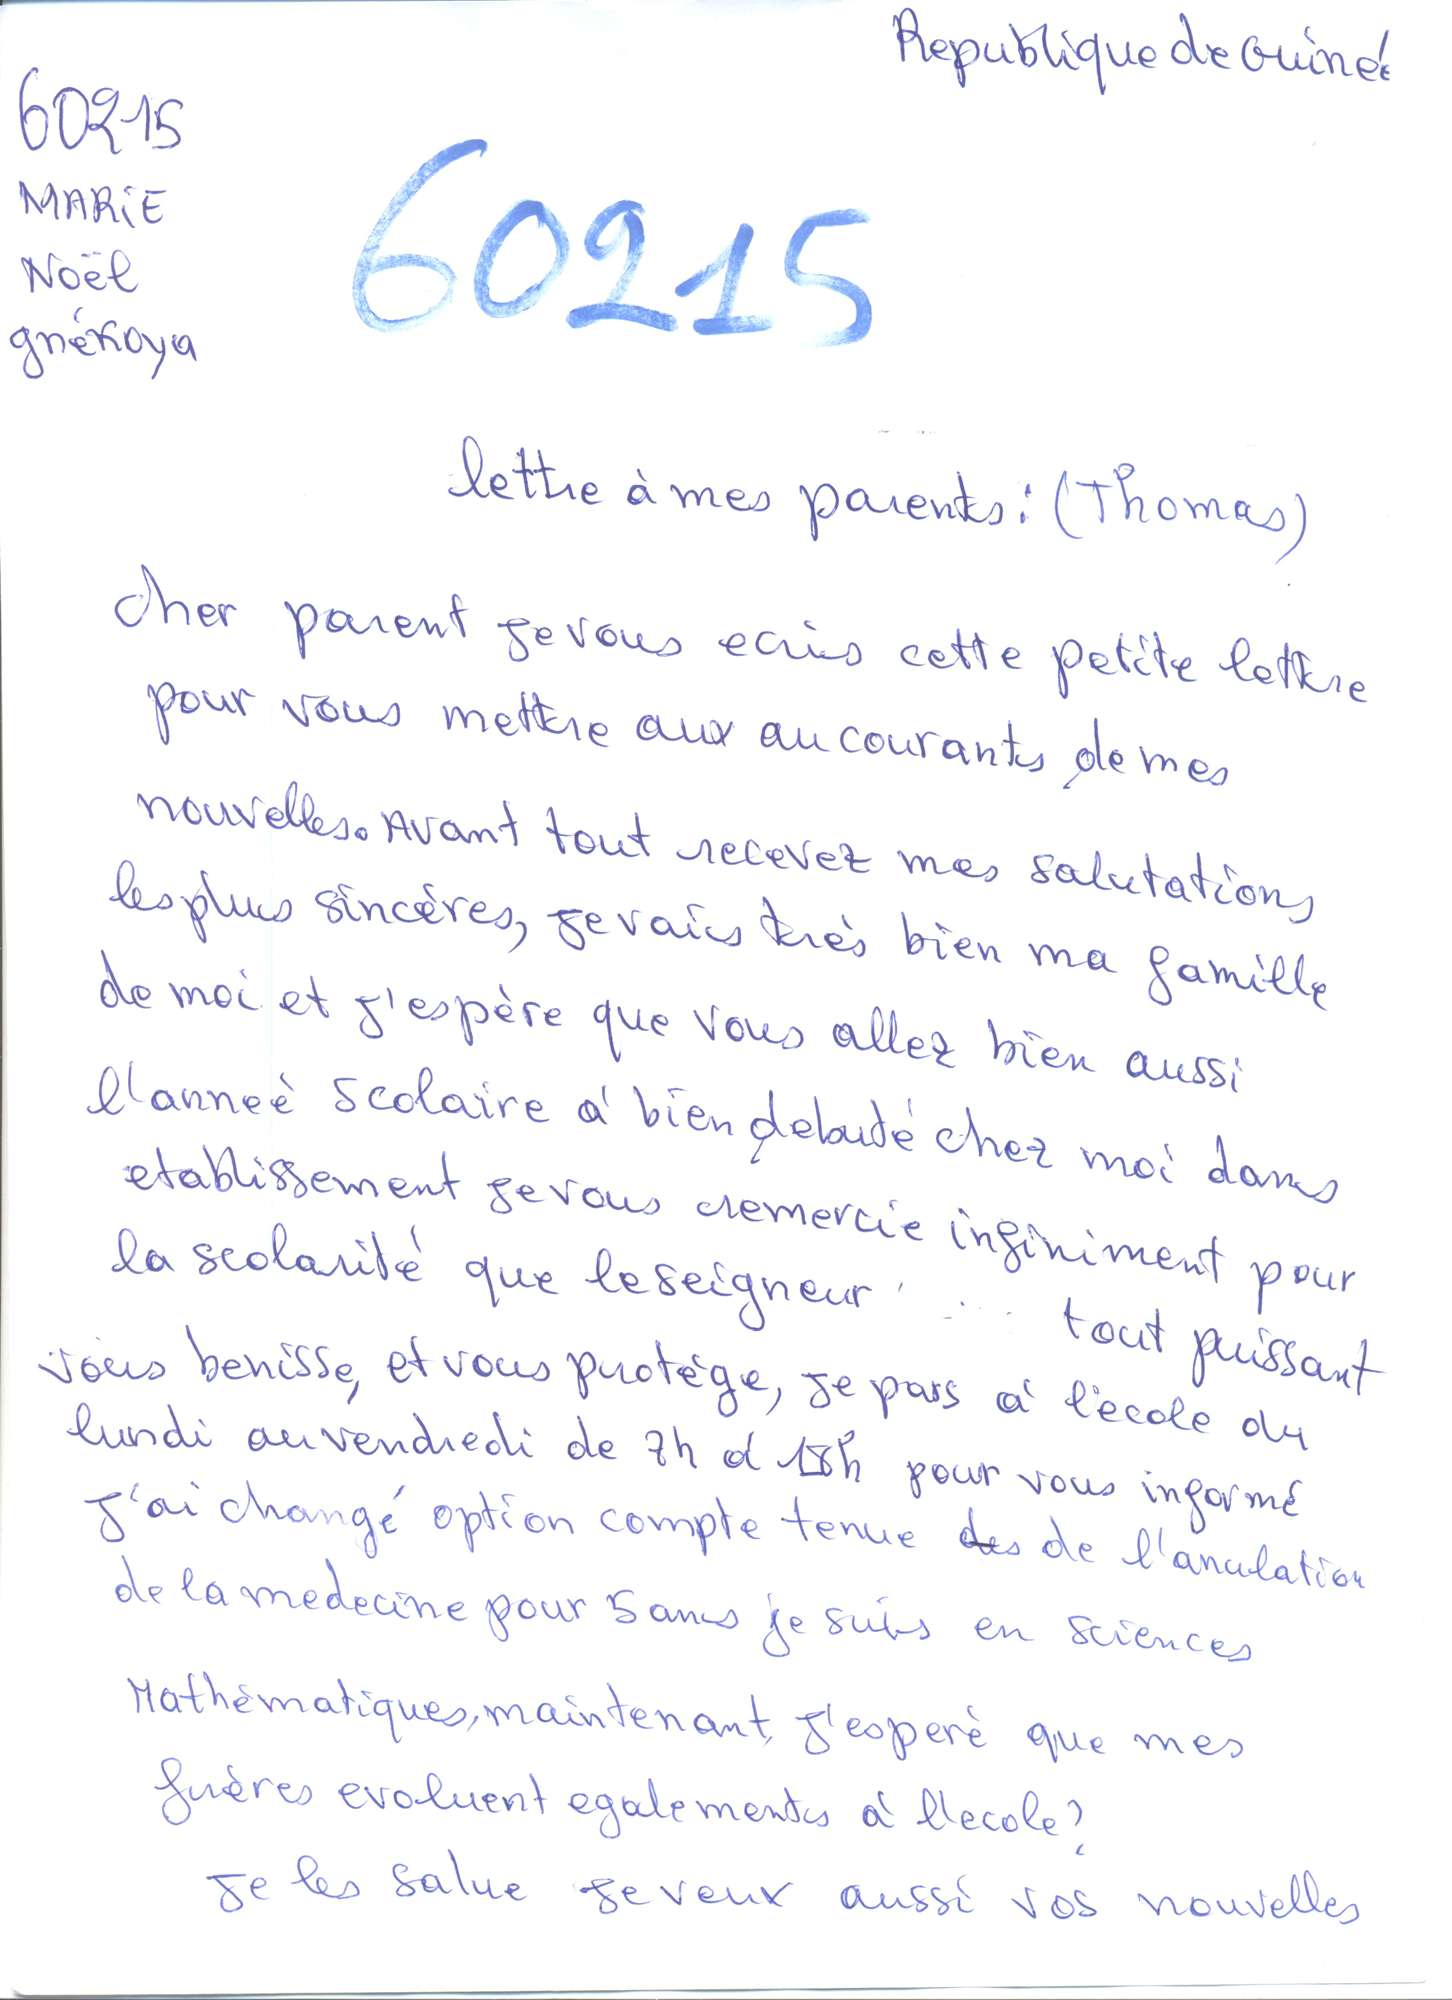 Republique de Guinée
60215
MARIE
Noël
gnékoya
60215
lettre à mes parents : (Thomas)
cher parent je vous ecris cette petite lettre
pour vous mettre aux au courants de mes
nouvelles. Avant tout recevez mes salutations
les plus sincéres, je vais très bien ma famille
de moi et j'espère que vous allez bien aussi
l'anneè scolaire à bien debuté chez moi dans
etablissement je vous remercie infiniment pour
la scolarité que le seigneur tout puissant
vous benisse, et vous protége, je pars à l'ecole du
lundi au vendredi de 7h à 18h pour vous informé
j'ai changé option compte tenue des de l'anulation
de la medecine pour 5 ans je suis en sciences
Mathématiques, maintenant, j'esperè que mes
frères evoluent egalements à l'ecole ?
je les salue je veux aussi vos nouvelles